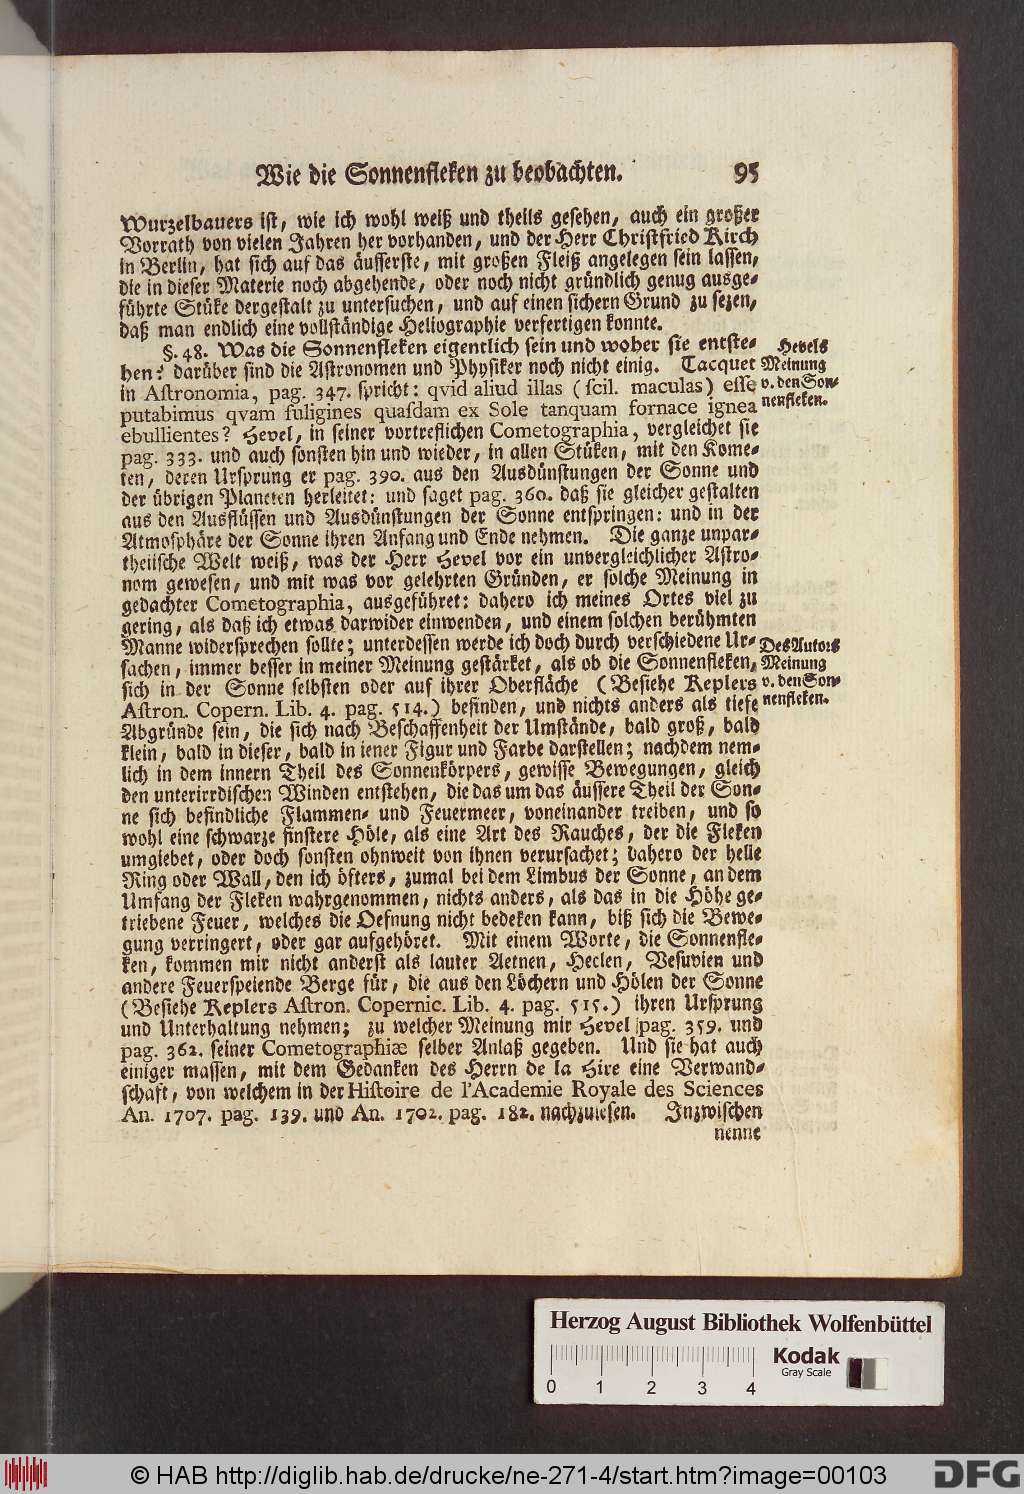 Wie die Sonnenfleken zu beobachten. 95
Wurzelbauers ist, wie ich wohl weiß und theils gesehen, auch ein großer
Vorrath von vielen Jahren her vorhanden, und der Herr Christfried Kirch
in Berlin, hat sich auf das äusserste, mit großen Fleiß angelegen sein lassen,
die in dieser Materie noch abgehende, oder noch nicht gründlich genug ausge-
führte Stüke dergestalt zu untersuchen, und auf einen sichern Grund zu sezen,
daß man endlich eine vollständige Heliographie verfertigen konnte.
§. 48. Was die Sonnenfleken eigentlich sein und woher sie entste-
hen? darüber sind die Astronomen und Physiker noch nicht einig. Tacquet
in Astronomia, pag. 347. spricht: qvid aliud illas (scil. maculas) esse
putabimus qvam fuligines quasdam ex Sole tanquam fornace ignea
ebullientes? Hevel, in seiner vortreflichen Cometographia, vergleichet sie
pag. 333. und auch sonsten hin und wieder, in allen Stüken, mit den Kome-
ten, deren Ursprung er pag. 390. aus den Ausdünstungen der Sonne und
der übrigen Planeten herleitet: und saget pag. 360. daß sie gleicher gestalten
aus den Ausflüssen und Ausdünstungen der Sonne entspringen: und in der
Atmosphäre der Sonne ihren Anfang und Ende nehmen. Die ganze unpar-
theiische Welt weiß, was der Herr Hevel vor ein unvergleichlicher Astro-
nom gewesen, und mit was vor gelehrten Gründen, er solche Meinung in
gedachter Cometographia, ausgeführet: dahero ich meines Ortes viel zu
gering, als daß ich etwas darwider einwenden, und einem solchen berühmten
Manne widersprechen sollte; unterdessen werde ich doch durch verschiedene Ur-
sachen, immer besser in meiner Meinung gestärket, als ob die Sonnenfleken,
sich in der Sonne selbsten oder auf ihrer Oberfläche (Besiehe Keplers
Astron. Copern. Lib. 4. pag. 514.) befinden, und nichts anders als tiefe
Abgründe sein, die sich nach Beschaffenheit der Umstände, bald groß, bald
klein, bald in dieser, bald in iener Figur und Farbe darstellen; nachdem nem-
lich in dem innern Theil des Sonnenkörpers, gewisse Bewegungen, gleich
den unterirrdischen Winden entstehen, die das um das äussere Theil der Son-
ne sich befindliche Flammen- und Feuermeer, voneinander treiben, und so
wohl eine schwarze finstere Höle, als eine Art des Rauches, der die Fleken
umgiebet, oder doch sonsten ohnweit von ihnen verursachet; dahero der helle
Ring oder Wall, den ich öfters, zumal bei dem Limbus der Sonne, an dem
Umfang der Fleken wahrgenommen, nichts anders, als das in die Höhe ge-
triebene Feuer, welches die Oefnung nicht bedeken kann, biß sich die Bewe-
gung verringert, oder gar aufgehöret. Mit einem Worte, die Sonnenfle-
ken, kommen mir nicht anderst als lauter Aetnen, Heclen, Vesuvien und
andere Feuerspeiende Berge für, die aus den Löchern und Hölen der Sonne
(Besiehe Keplers Astron. Copernic. Lib. 4. pag. 515.) ihren Ursprung
und Unterhaltung nehmen; zu welcher Meinung mir Hevel pag. 359. und
pag. 362. seiner Cometographiæ selber Anlaß gegeben. Und sie hat auch
einiger massen, mit dem Gedanken des Herrn de la Hire eine Verwand-
schaft, von welchem in der Histoire de l'Academie Royale des Sciences
An. 1707. pag. 139. und An. 1702. pag. 182. nachzulesen. Inzwischen
nenne
Hevels
Meinung
v. den Son-
nenfleken.
Des Autors
Meinung
v. den Son-
nenfleken.
Herzog August Bibliothek Wolfenbüttel
0 1 2 3 4
Kodak
Gray Scale
© HAB http://diglib.hab.de/drucke/ne-271-4/start.htm?image=00103
DFG